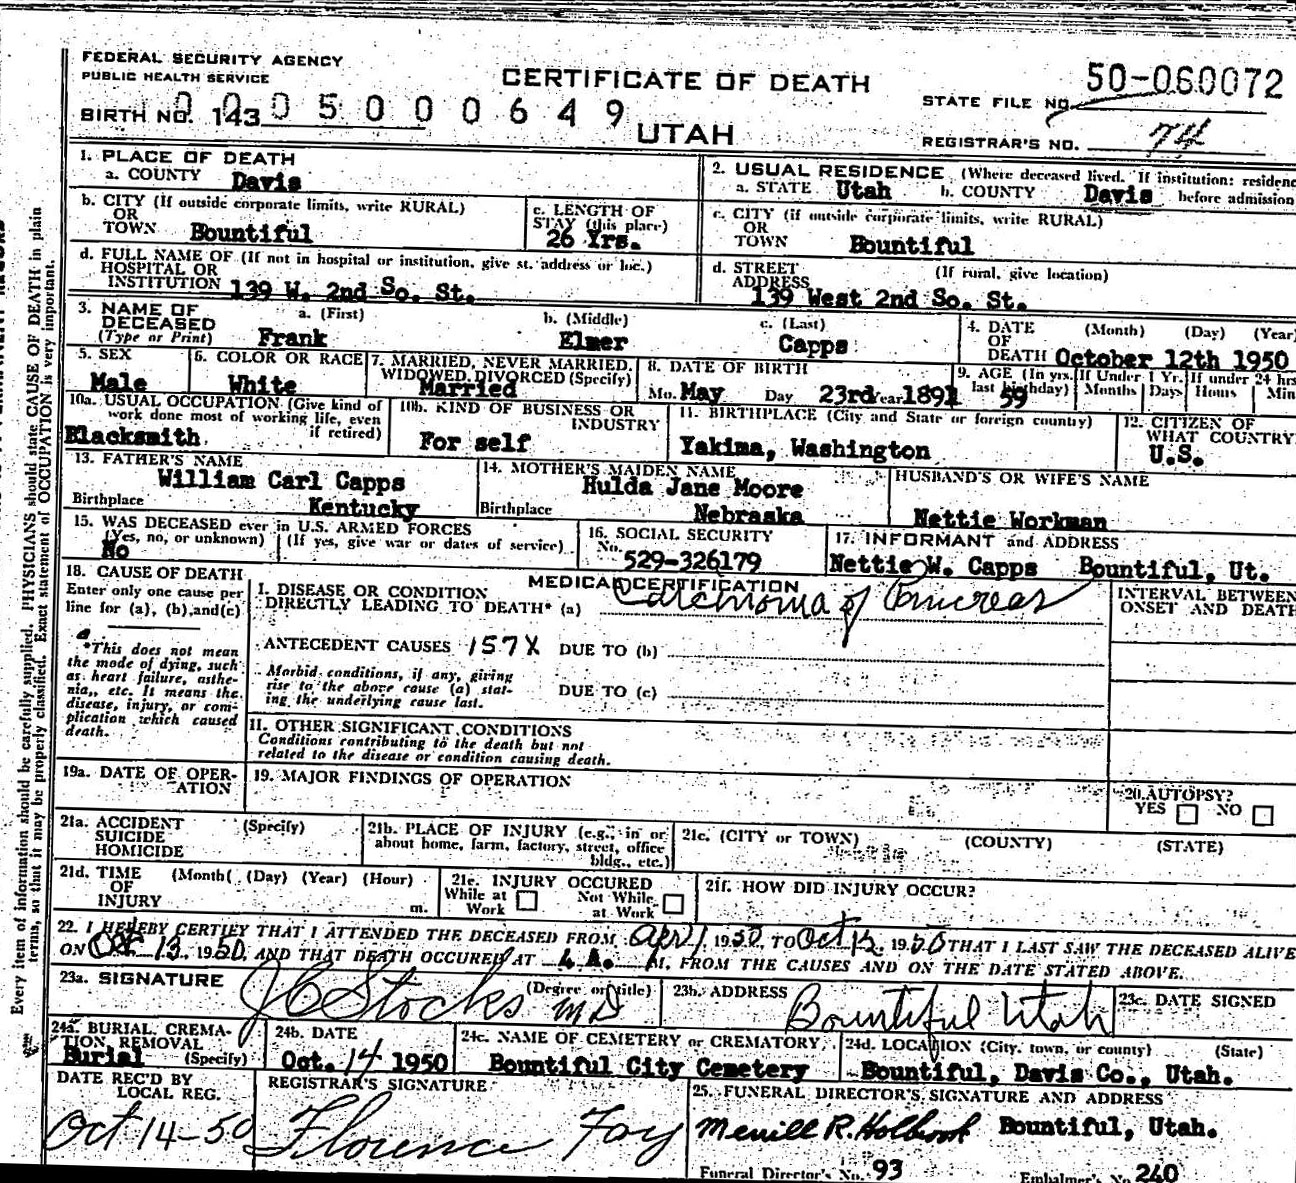 FEDERAL SECURITY AGENCY
PUBLIC HEALTH SERVICE
CERTIFICATE OF DEATH
UTAH
STATE FILE NO. 50-060072
BIRTH NO. 143 0005000649
REGISTRAR'S NO. 74
Every item of information should be carefully supplied. PHYSICIANS should state CAUSE OF DEATH in plain
terms, so that it may be properly classified. Exact statement of OCCUPATION is very important.
1. PLACE OF DEATH
a. COUNTY Davis
2. USUAL RESIDENCE (Where deceased lived. If institution: residence
a. STATE Utah b. COUNTY Davis before admission
b. CITY (If outside corporate limits, write RURAL)
OR
TOWN Bountiful
c. LENGTH OF
STAY (this place)
26 Yrs.
c. CITY (if outside corporate limits, write RURAL)
OR
TOWN Bountiful
d. FULL NAME OF (If not in hospital or institution, give st. address or loc.)
HOSPITAL OR
INSTITUTION 139 W. 2nd So. St.
d. STREET (If rural, give location)
ADDRESS
139 West 2nd So. St.
3. NAME OF
DECEASED
(Type or Print)
a. (First) b. (Middle) c. (Last)
Frank Elmer Capps
4. DATE (Month) (Day) (Year)
OF
DEATH October 12th 1950
5. SEX
Male
6. COLOR OR RACE
White
7. MARRIED, NEVER MARRIED,
WIDOWED, DIVORCED (Specify)
Married
8. DATE OF BIRTH
Mo. May Day 23rd Year 1891
9. AGE (In yrs. last birthday) 59
If Under 1 Yr. Months Days
If under 24 hrs Hours Min
10a. USUAL OCCUPATION (Give kind of
work done most of working life, even
if retired)
Blacksmith
10b. KIND OF BUSINESS OR
INDUSTRY
For self
11. BIRTHPLACE (City and State or foreign country)
Yakima, Washington
12. CITIZEN OF
WHAT COUNTRY
U.S.
13. FATHER'S NAME
William Carl Capps
Birthplace Kentucky
14. MOTHER'S MAIDEN NAME
Hulda Jane Moore
Birthplace Nebraska
HUSBAND'S OR WIFE'S NAME
Nettie Workman
15. WAS DECEASED ever in U.S. ARMED FORCES
(Yes, no, or unknown) (If yes, give war or dates of service)
No
16. SOCIAL SECURITY
No. 529-326179
17. INFORMANT and ADDRESS
Nettie W. Capps Bountiful, Ut.
18. CAUSE OF DEATH
Enter only one cause per
line for (a), (b), and (c)
*This does not mean
the mode of dying, such
as heart failure, asthe-
nia, etc. It means the
disease, injury, or com-
plication which caused
death.
MEDICAL CERTIFICATION
I. DISEASE OR CONDITION
DIRECTLY LEADING TO DEATH* (a) Carcinoma of Pancreas
INTERVAL BETWEEN
ONSET AND DEATH
ANTECEDENT CAUSES 157X DUE TO (b)
Morbid conditions, if any, giving
rise to the above cause (a) stat-
ing the underlying cause last.
DUE TO (c)
II. OTHER SIGNIFICANT CONDITIONS
Conditions contributing to the death but not
related to the disease or condition causing death.
19a. DATE OF OPER-
ATION
19. MAJOR FINDINGS OF OPERATION
20. AUTOPSY?
YES NO
21a. ACCIDENT (Specify)
SUICIDE
HOMICIDE
21b. PLACE OF INJURY (e.g., in or
about home, farm, factory, street, office
bldg., etc.)
21c. (CITY or TOWN) (COUNTY) (STATE)
21d. TIME (Month( (Day) (Year) (Hour)
OF
INJURY m.
21e. INJURY OCCURED
While at Work Not While at Work
21f. HOW DID INJURY OCCUR?
22. I HEREBY CERTIFY THAT I ATTENDED THE DECEASED FROM April 1950, TO Oct 12, 1950 THAT I LAST SAW THE DECEASED ALIVE
ON Oct 13, 1950, AND THAT DEATH OCCURED AT A. M, FROM THE CAUSES AND ON THE DATE STATED ABOVE.
23a. SIGNATURE (Degree or title)
J C Stocks MD
23b. ADDRESS
Bountiful Utah
23c. DATE SIGNED
24a. BURIAL, CREMA-
TION, REMOVAL
Burial (Specify)
24b. DATE
Oct. 14 1950
24c. NAME OF CEMETERY or CREMATORY
Bountiful City Cemetery
24d. LOCATION (City, town, or county) (State)
Bountiful, Davis Co., Utah.
DATE REC'D BY
LOCAL REG.
Oct 14-50
REGISTRAR'S SIGNATURE
Florence Foy
25. FUNERAL DIRECTOR'S SIGNATURE AND ADDRESS
Merrill R. Holbrook Bountiful, Utah.
Funeral Director's No. 93 Embalmer's No 240